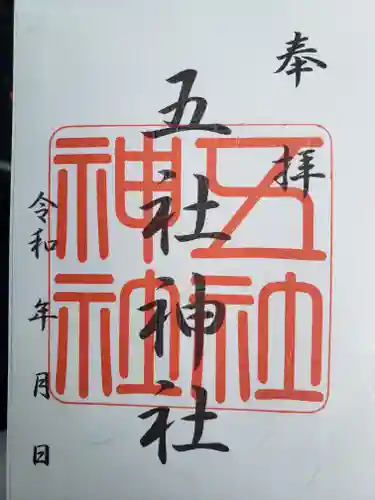 奉拝
五社神社
五社
神社
令和 年 月 日